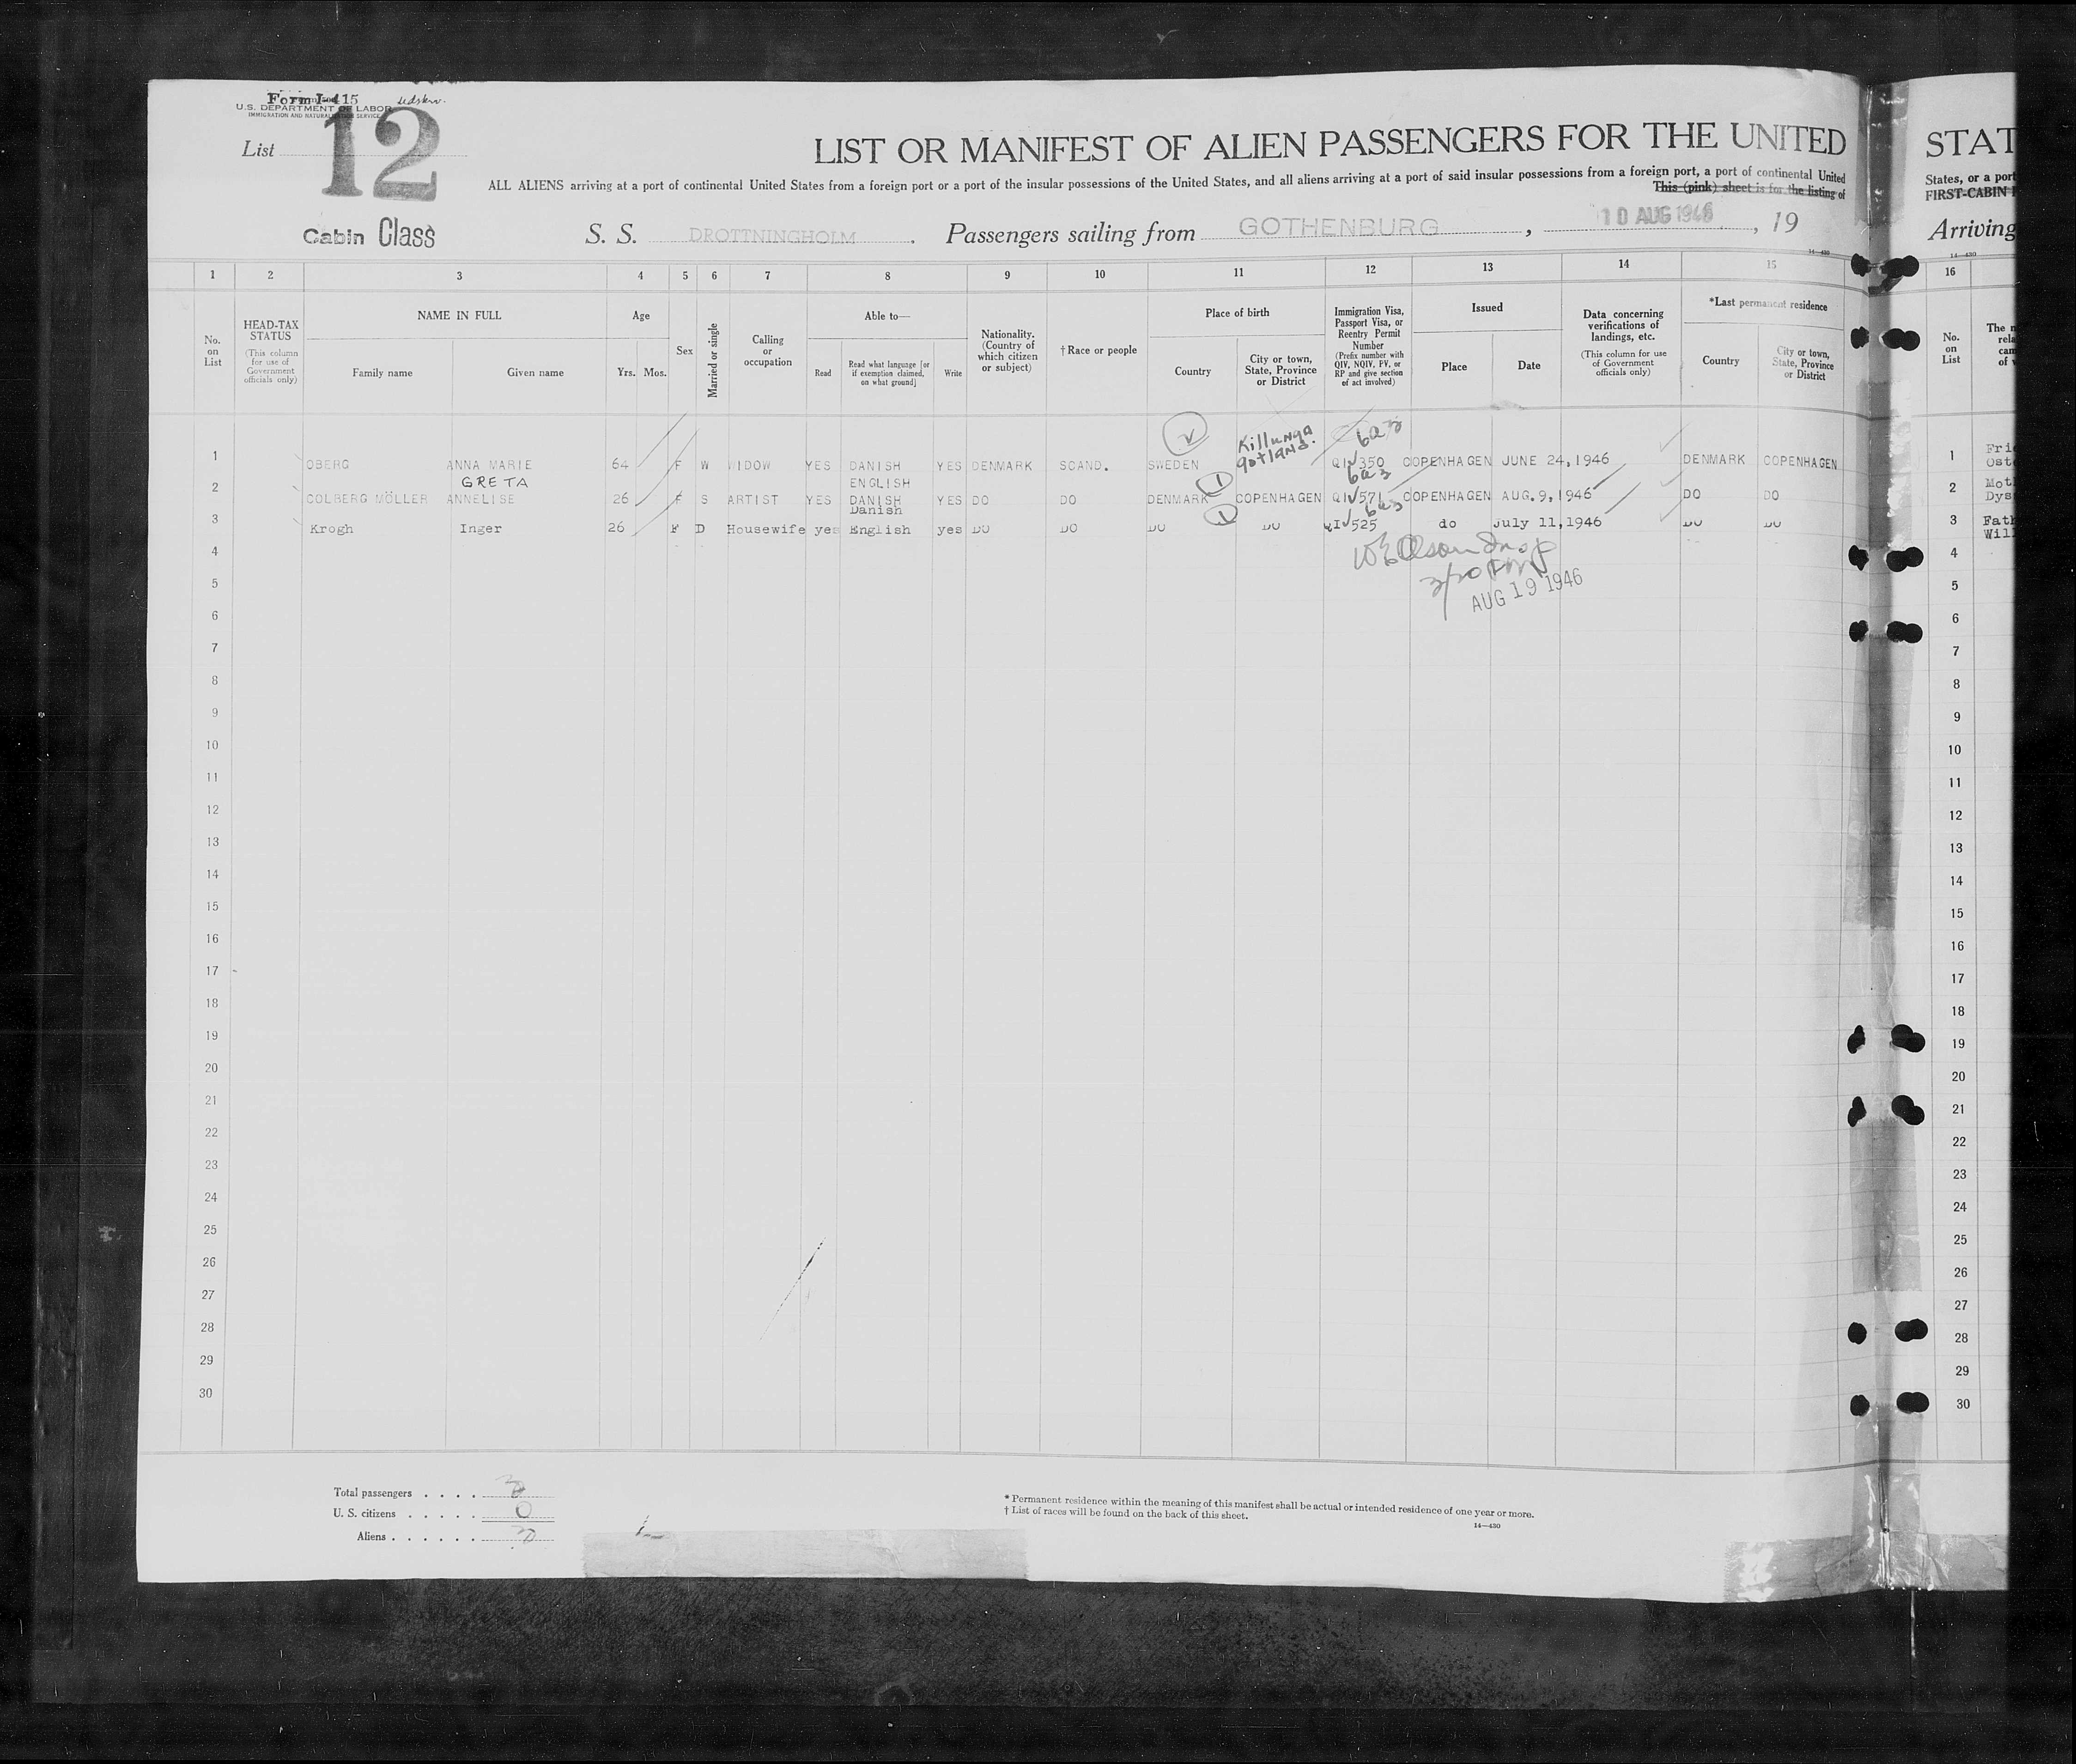 Form I-415
U.S. DEPARTMENT OF LABOR
IMMIGRATION AND NATURALIZATION SERVICE
List 12
LIST OR MANIFEST OF ALIEN PASSENGERS FOR THE UNITED
ALL ALIENS arriving at a port of continental United States from a foreign port or a port of the insular possessions of the United States, and all aliens arriving at a port of said insular possessions from a foreign port, a port of continental United
This (pink) sheet is for the listing of
Cabin Class S. S. DROTTNINGHOLM . Passengers sailing from GOTHENBURG , 10 AUG 1946 , 19
14—430
1 2 3 4 5 6 7 8 9 10 11 12 13 14 15
No. on List
HEAD-TAX STATUS (This column for use of Government officials only)
NAME IN FULL Family name Given name
Age Yrs. Mos.
Sex
Married or single
Calling or occupation
Able to— Read Read what language [or if exemption claimed, on what ground] Write
Nationality. (Country of which citizen or subject)
†Race or people
Place of birth Country City or town, State, Province or District
Immigration Visa, Passport Visa, or Reentry Permit Number (Prefix number with QIV, NQIV, PV, or RP and give section of act involved)
Issued Place Date
Data concerning verifications of landings, etc. (This column for use of Government officials only)
*Last permanent residence Country City or town, State, Province or District
Killunga
gotland.
6a3
1 OBERG ANNA MARIE 64 F W WIDOW YES DANISH YES DENMARK SCAND. SWEDEN QIV350 COPENHAGEN JUNE 24,1946 DENMARK COPENHAGEN
GRETA ENGLISH 1 6a3
2 COLBERG MÖLLER ANNELISE 26 F S ARTIST YES DANISH YES DO DO DENMARK COPENHAGEN QIV571 COPENHAGEN AUG.9,1946 DO DO
Danish 1 6a3
3 Krogh Inger 26 F D Housewife yes English yes DO DO DO DO QIV525 do July 11,1946 DO DO
AUG 19 1946
4
5
6
7
8
9
10
11
12
13
14
15
16
17
18
19
20
21
22
23
24
25
26
27
28
29
30
Total passengers . . . . 3
U. S. citizens . . . . . 0
Aliens . . . . . . 3
* Permanent residence within the meaning of this manifest shall be actual or intended residence of one year or more.
† List of races will be found on the back of this sheet.
14—430
STAT
States, or a port
FIRST-CABIN
Arriving
14—430
16
No. on List
The n
rela
cam
of
1 Frie
Oste
2 Moth
Dys
3 Fath
Will
4
5
6
7
8
9
10
11
12
13
14
15
16
17
18
19
20
21
22
23
24
25
26
27
28
29
30